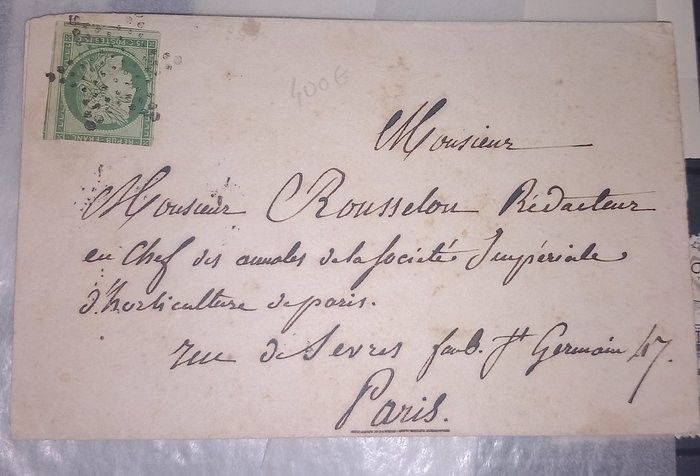 15 c. POSTES 15 c.
REPUB. FRANC.
400€
Monsieur
Monsieur Rousselon Rédacteur
en Chef des annales de la Société Impériale
d'horticulture de paris.
rue de Sevres faub. St Germain 47.
Paris.